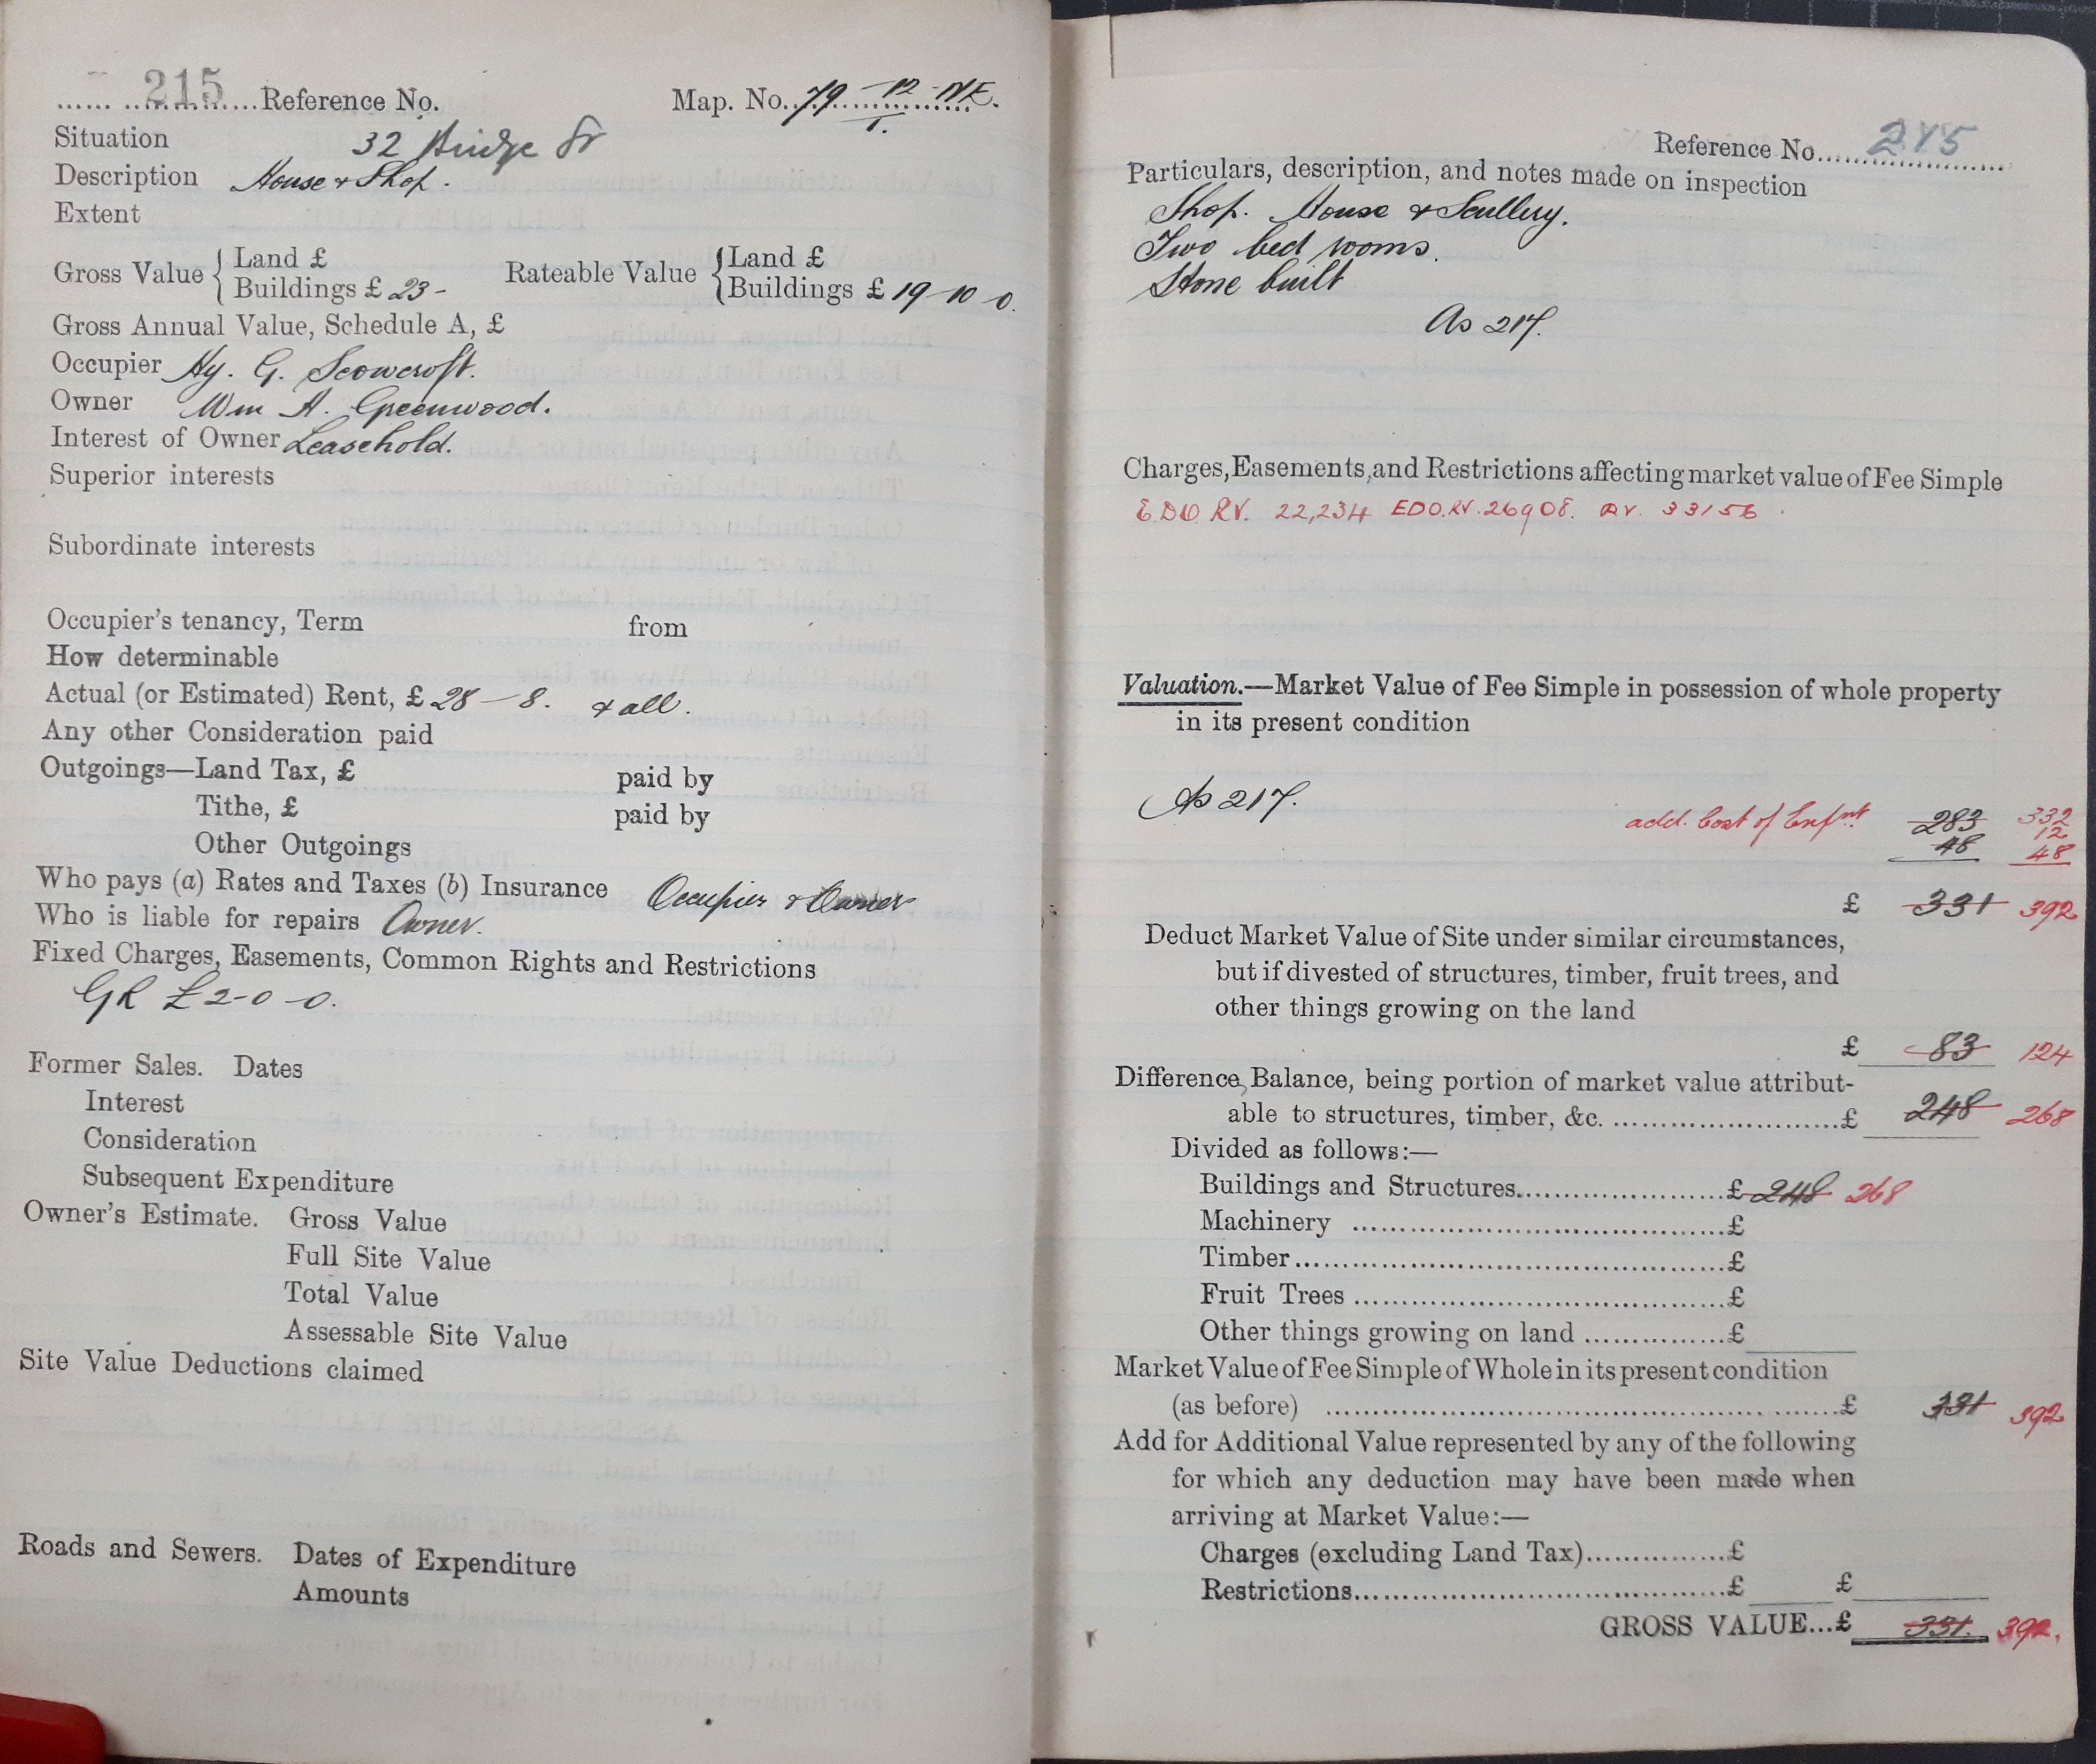 215 Reference No. Map. No. 79-12-NE.
1.
Situation 32 Bridge St
Description House & Shop.
Extent
Gross Value { Land £ Rateable Value { Land £
Buildings £ 23- Buildings £ 19-10-0.
Gross Annual Value, Schedule A, £
Occupier Hy. G. Scowcroft.
Owner Wm A. Greenwood.
Interest of Owner Leasehold.
Superior interests
Subordinate interests
Occupier's tenancy, Term from
How determinable
Actual (or Estimated) Rent, £ 28-8. & all.
Any other Consideration paid
Outgoings—Land Tax, £ paid by
Tithe, £ paid by
Other Outgoings
Who pays (a) Rates and Taxes (b) Insurance Occupier & Owner
Who is liable for repairs Owner.
Fixed Charges, Easements, Common Rights and Restrictions
GR £2-0-0.
Former Sales. Dates
Interest
Consideration
Subsequent Expenditure
Owner's Estimate. Gross Value
Full Site Value
Total Value
Assessable Site Value
Site Value Deductions claimed
Roads and Sewers. Dates of Expenditure
Amounts
Reference No. 215
Particulars, description, and notes made on inspection
Shop. House & Scullery.
Two bed rooms.
Stone built
As 217.
Charges, Easements, and Restrictions affecting market value of Fee Simple
E.D.O. RV. 22,234 EDO.RV. 26908. RV. 33156.
Valuation.—Market Value of Fee Simple in possession of whole property
in its present condition
As 217.
add. Cost of Enfmt. 283 332
12
48 48
£ 331 392
Deduct Market Value of Site under similar circumstances,
but if divested of structures, timber, fruit trees, and
other things growing on the land
£ 83 124
Difference, Balance, being portion of market value attribut-
able to structures, timber, &c. £ 248 268
Divided as follows:—
Buildings and Structures £ 248 268
Machinery £
Timber £
Fruit Trees £
Other things growing on land £
Market Value of Fee Simple of Whole in its present condition
(as before) £ 331 392
Add for Additional Value represented by any of the following
for which any deduction may have been made when
arriving at Market Value:—
Charges (excluding Land Tax) £
Restrictions £ £
GROSS VALUE...£ 331. 392.